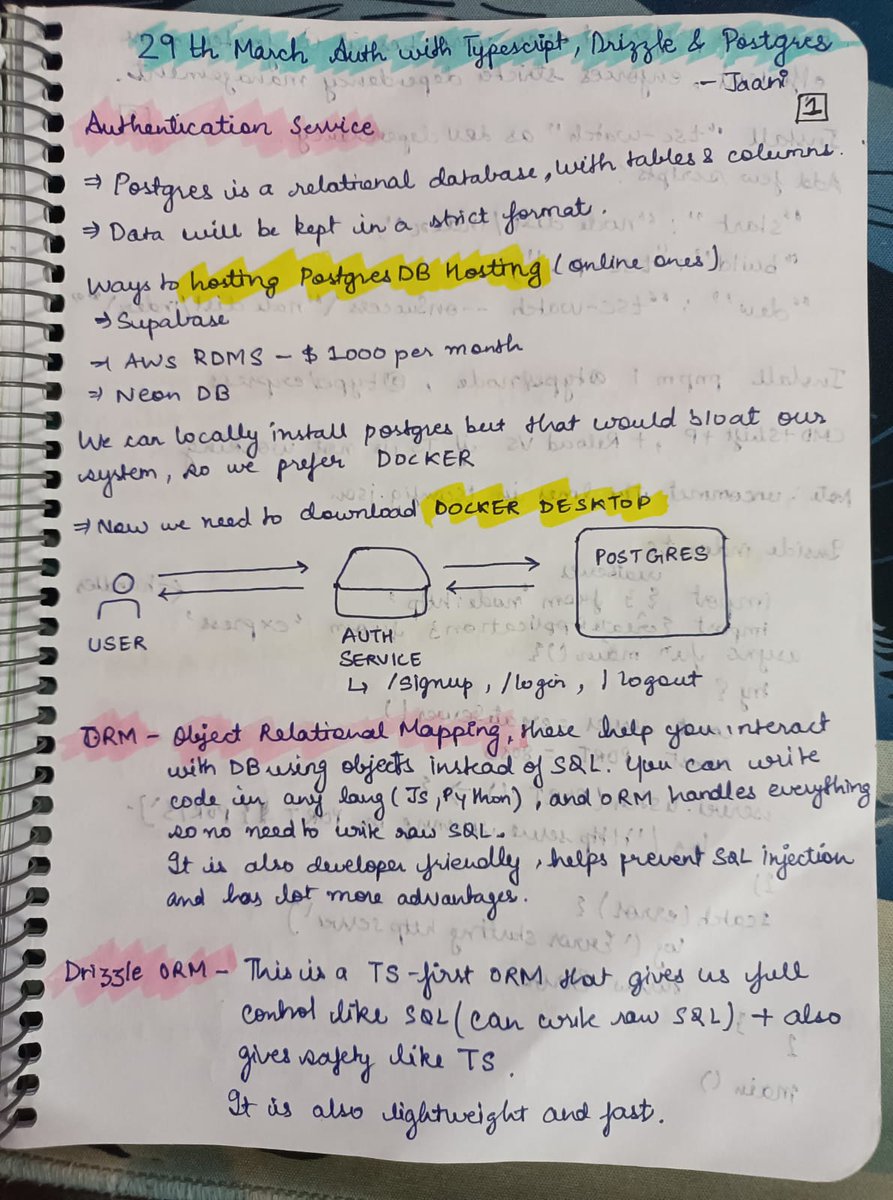 29 th March Auth with Typescript, Drizzle & Postgres
- Jaani
1
Authentication Service
⇒ Postgres is a relational database, with tables & columns.
⇒ Data will be kept in a strict format.
Ways to hosting Postgres DB Hosting (online ones)
⇒ Supabase
⇒ AWS RDMS - $ 1000 per month
⇒ Neon DB
We can locally install postgres but that would bloat our
system, so we prefer DOCKER
⇒ Now we need to download DOCKER DESKTOP
POSTGRES
USER
AUTH
SERVICE
↳ /signup, /login, /logout
ORM - Object Relational Mapping, these help you interact
with DB using objects instead of SQL. You can write
code in any lang (JS, Python), and ORM handles everything
so no need to write raw SQL.
It is also developer friendly, helps prevent SQL injection
and has lot more advantages.
Drizzle ORM - This is a TS-first ORM that gives us full
control like SQL (can write raw SQL) + also
gives safety like TS.
It is also lightweight and fast.